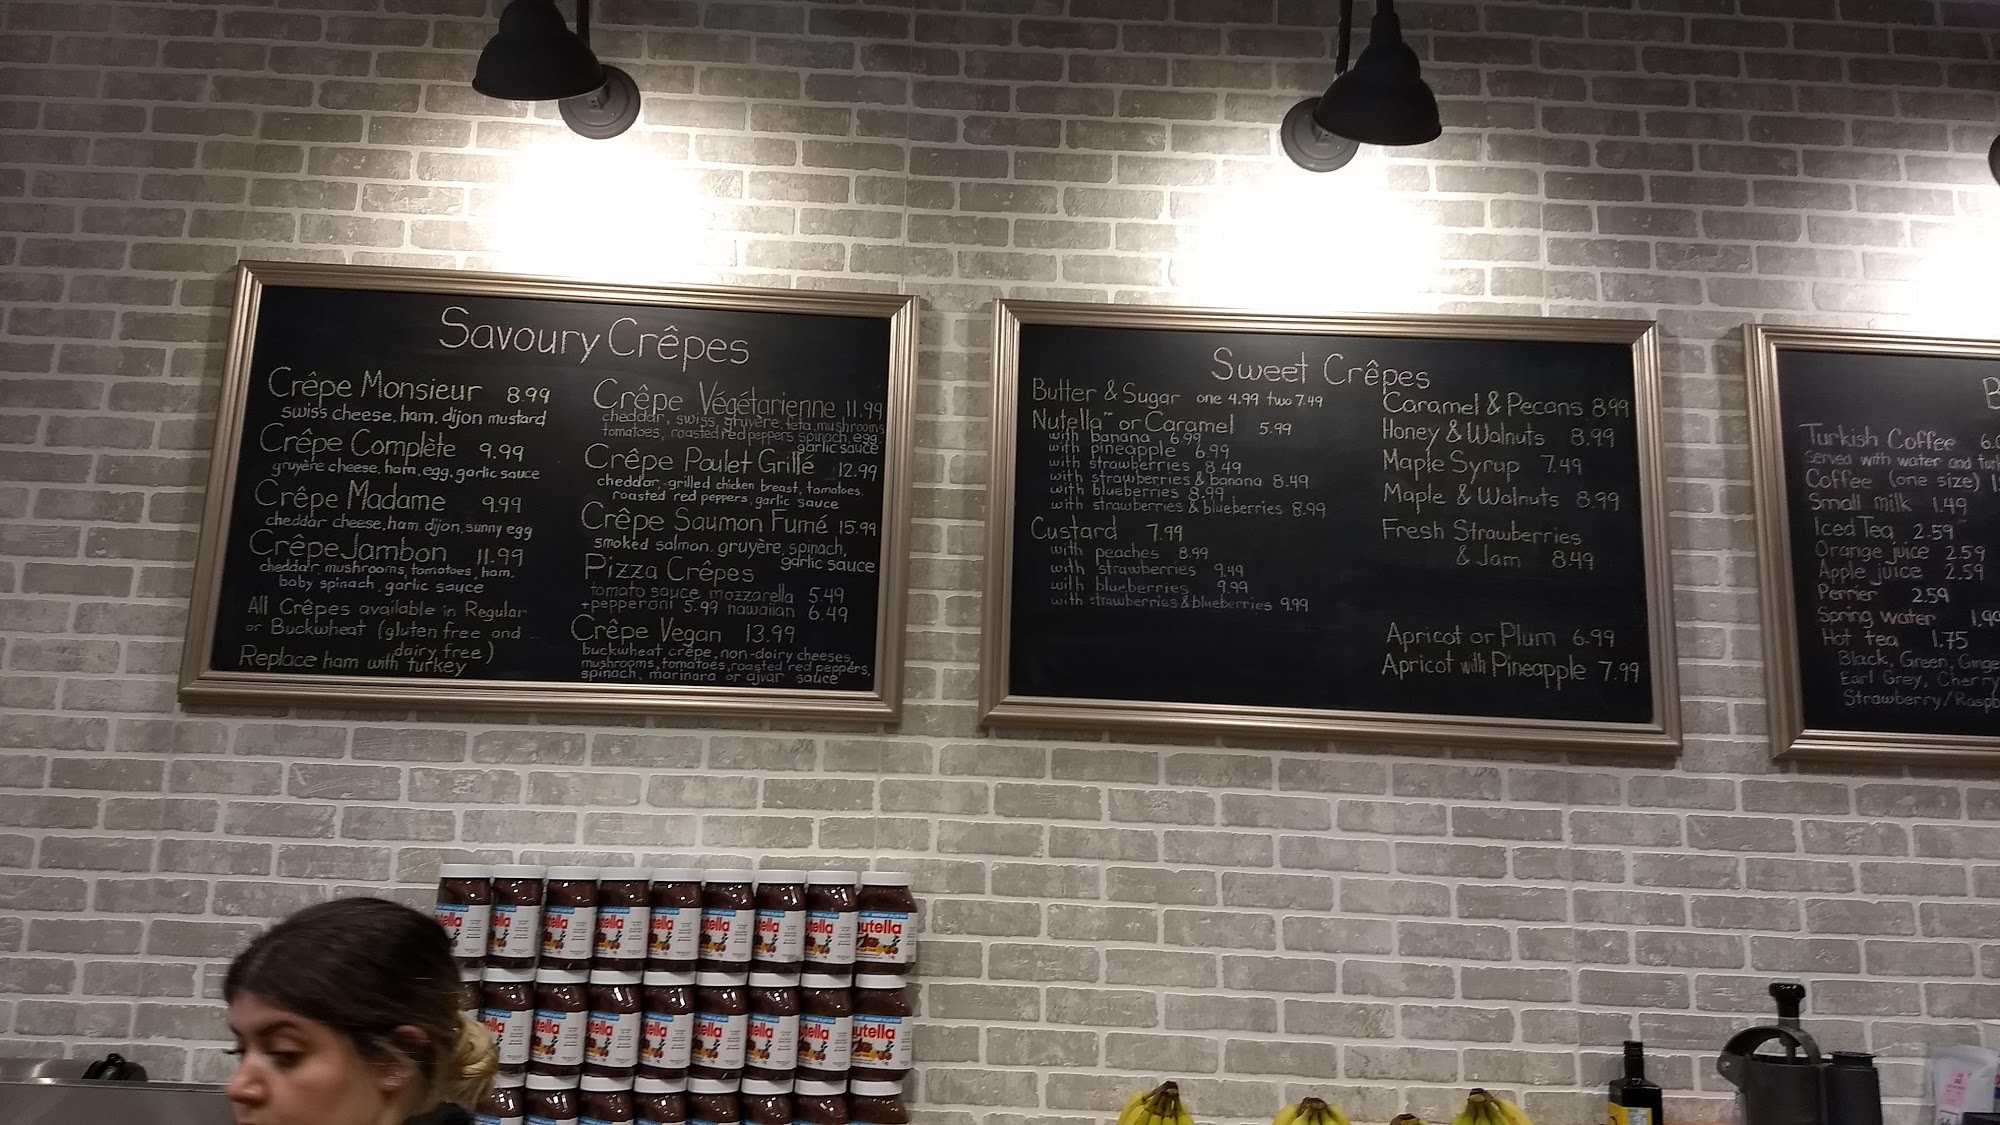 Savoury Crêpes
Crêpe Monsieur 8.99
swiss cheese, ham, dijon mustard
Crêpe Complète 9.99
gruyère cheese, ham, egg, garlic sauce
Crêpe Madame 9.99
cheddar cheese, ham, dijon, sunny egg
Crêpe Jambon 11.99
cheddar, mushrooms, tomatoes, ham,
baby spinach, garlic sauce
All Crêpes available in Regular
or Buckwheat (gluten free and
dairy free)
Replace ham with turkey
Crêpe Végétarienne 11.99
cheddar, swiss, gruyère, feta, mushrooms
tomatoes, roasted red peppers spinach, egg,
garlic sauce
Crêpe Poulet Grillé 12.99
cheddar, grilled chicken breast, tomatoes,
roasted red peppers, garlic sauce
Crêpe Saumon Fumé 15.99
smoked salmon, gruyère, spinach,
garlic sauce
Pizza Crêpes
tomato sauce mozzarella 5.49
+pepperoni 5.99 hawaiian 6.49
Crêpe Vegan 13.99
buckwheat crêpe, non-dairy cheeses,
mushrooms, tomatoes, roasted red peppers,
spinach, marinara or ajvar sauce
Sweet Crêpes
Butter & Sugar one 4.99 two 7.49
Nutella™ or Caramel 5.99
with banana 6.99
with pineapple 6.99
with strawberries 8.49
with strawberries & banana 8.49
with blueberries 8.99
with strawberries & blueberries 8.99
Custard 7.99
with peaches 8.99
with strawberries 9.49
with blueberries 9.99
with strawberries & blueberries 9.99
Caramel & Pecans 8.99
Honey & Walnuts 8.99
Maple Syrup 7.49
Maple & Walnuts 8.99
Fresh Strawberries
& Jam 8.49
Apricot or Plum 6.99
Apricot with Pineapple 7.99
B
Turkish Coffee 6.
Served with water and
Coffee (one size)
Small milk 1.49
Iced Tea 2.59
Orange juice 2.59
Apple juice 2.59
Perrier 2.59
Spring water 1.99
Hot tea 1.75
Black, Green, Ginge
Earl Grey, Cherry
Strawberry/Raspb
ella ella tella utella tella tella tella utella utella
tella tella utella tella tella tella utella utella